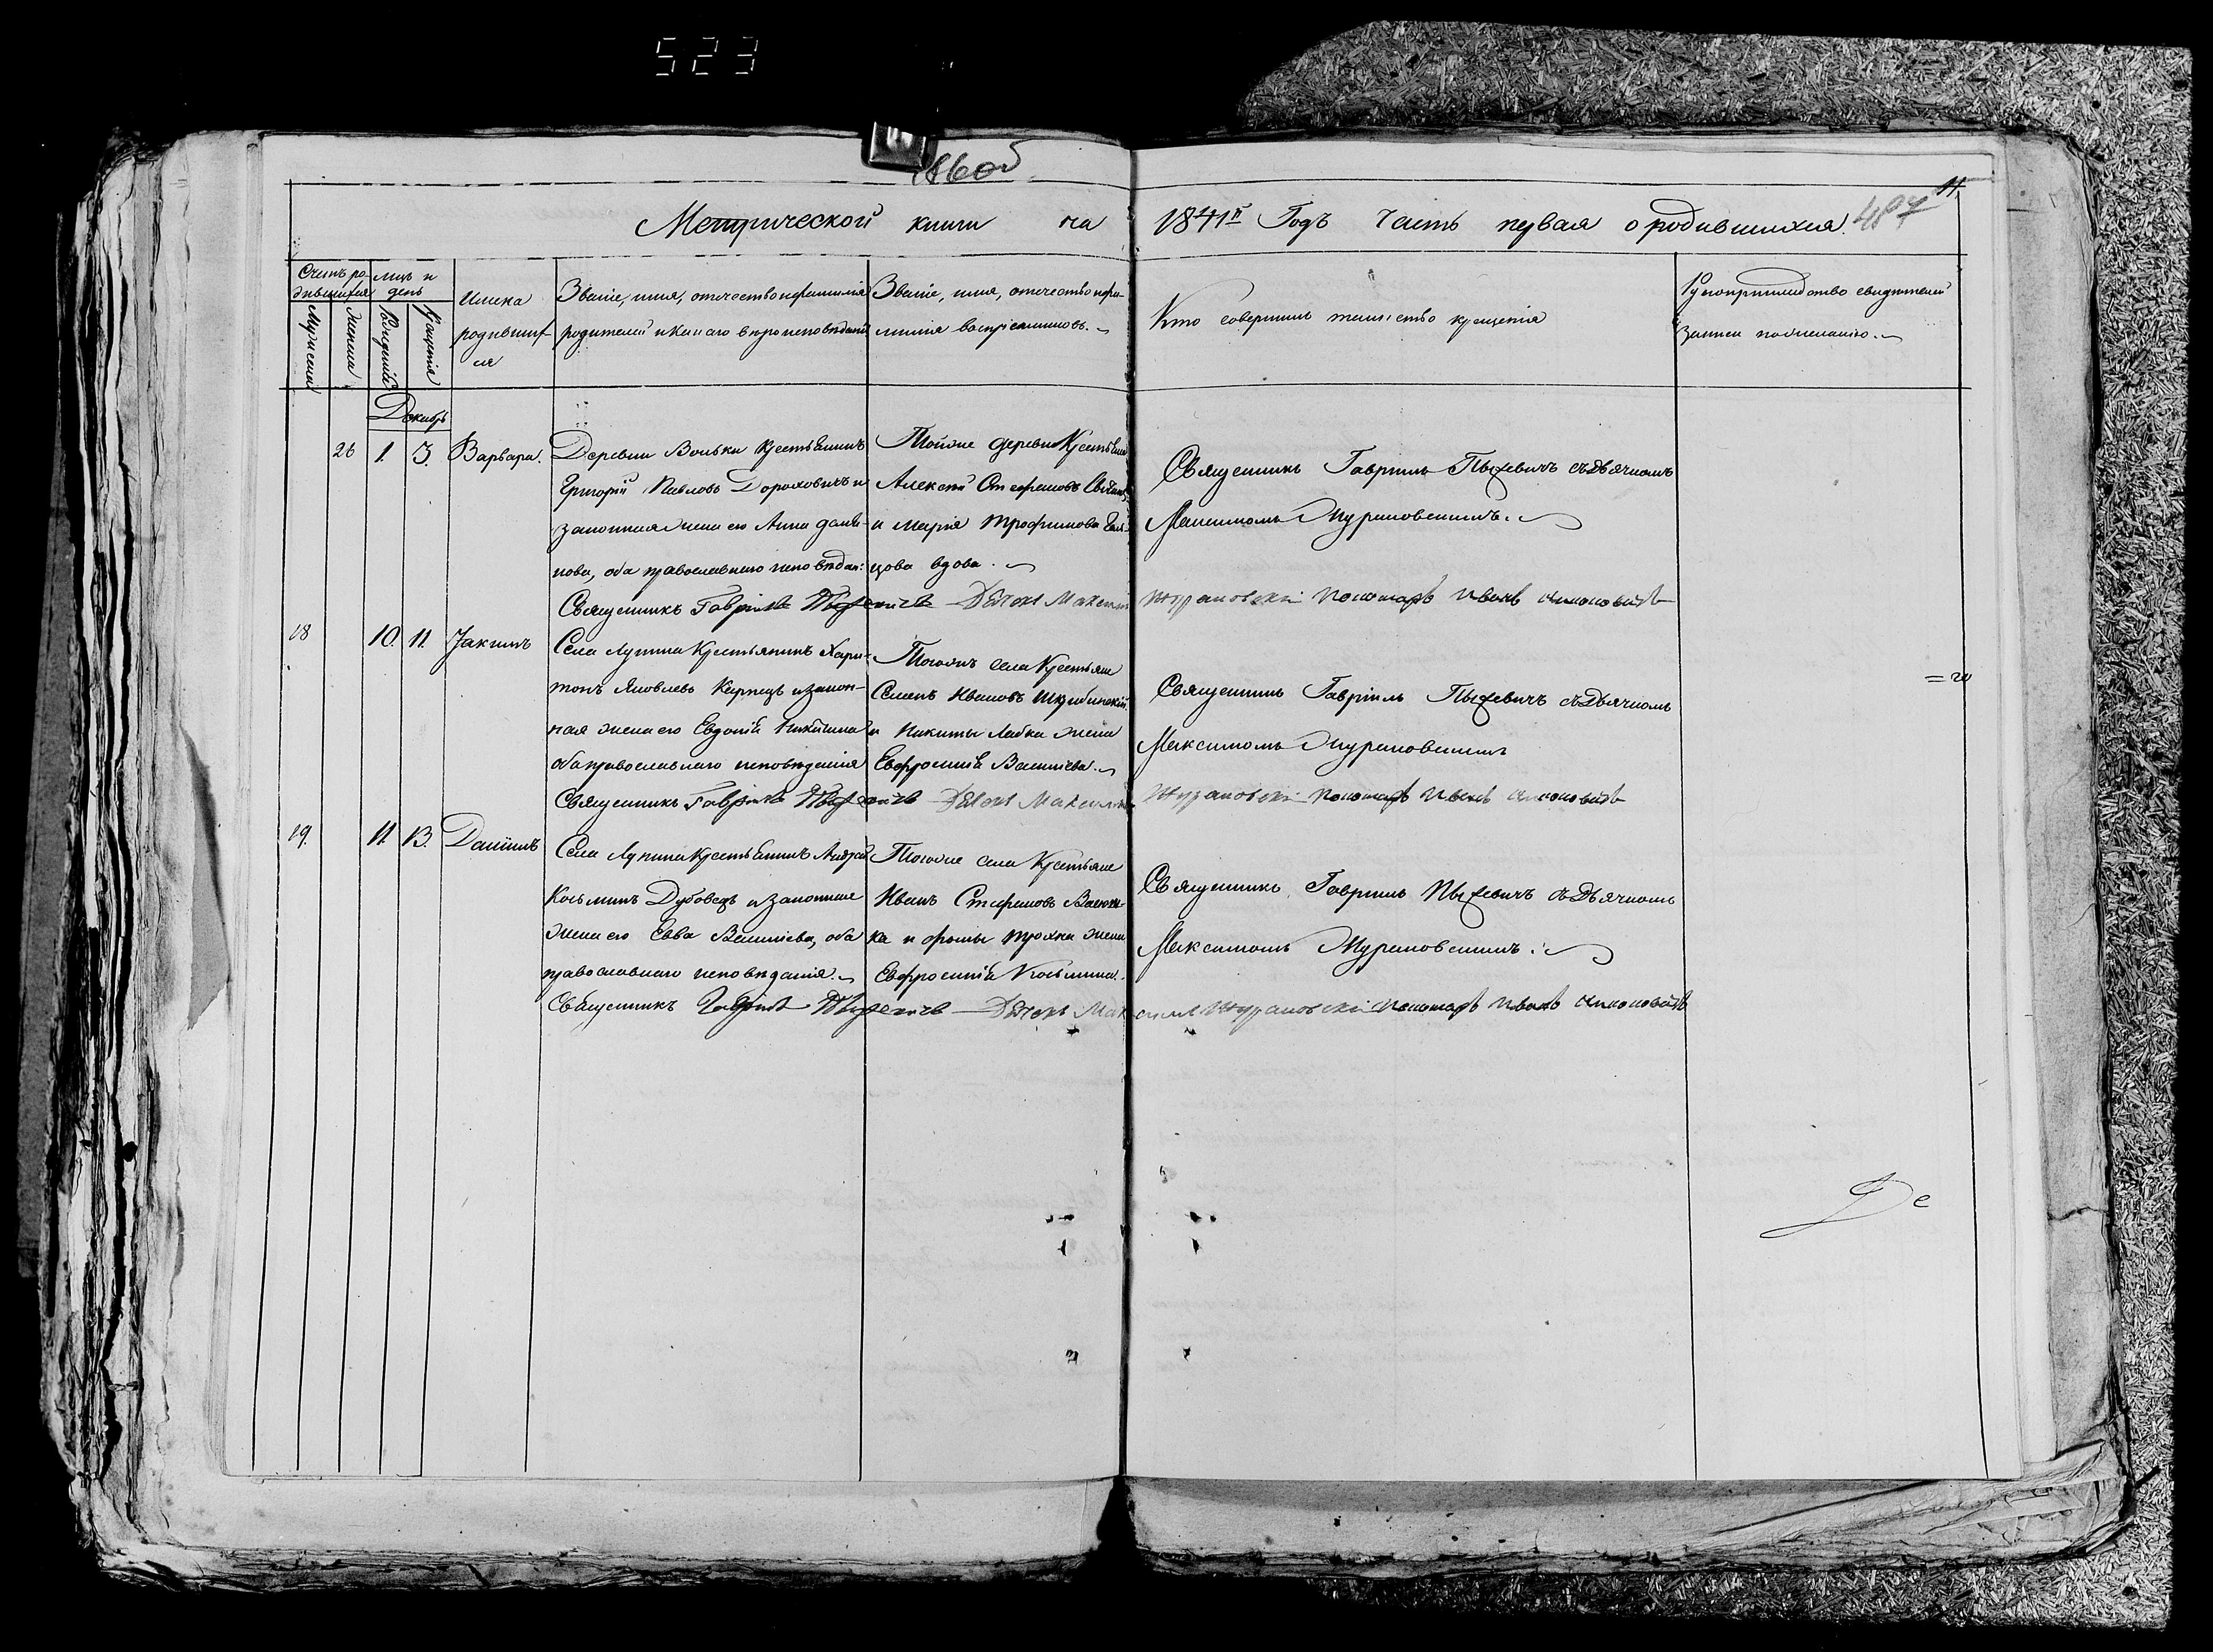 523
486об
11.
Метрической книги на 1841й Годъ Часть первая о родившихся.
487
Счетъ ро-
дившихся
мцъ и
день
Мужеска
Женска
Рожденій
Крещенія
Имена
родивших-
ся
Званіе, имя, отчество и фамилія
родителей и какаго вѣроисповѣданія
Званіе, имя, отчество и фа-
милія воспріемниковъ.
Кто совершилъ таинство крещенія
Рукоприкладство свидѣтелей
записи по желанію.
Декабрь
26 1. 3. Варвара.
Деревни Вольки Крестьянинъ
Григорій Павловъ Дорохович и
законная жена его Анна
нова, оба православнаго исповѣдан:
Тойже деревни
Алексѣй Стефановъ
и Марія Трофимова
цова вдова.
Священникъ Гавріилъ Пыхевичъ съ Дьячкомъ
Максимомъ Журановскимъ.
Священникъ Гавріилъ Пыхевичъ Дьячокъ Максимъ Журановскій Пономаръ Иванъ
18 10. 11. Іакимъ
Села Лупина Крестьянинъ Хари-
тонъ Яковлевъ Карпецъ и закон-
ная жена его Евдокія Никитина
оба православнаго исповѣданія
Тогожъ села Крестьяне
Семенъ Ивановъ
и Никиты Лабка жена
Евфросинія Васильева.
Священникъ Гавріилъ Пыхевичъ съ Дьячкомъ
Максимомъ Журановскимъ
Священникъ Гавріилъ Пыхевичъ Дьячокъ Максимъ Журановскій Пономаръ Иванъ
19. 11. 13. Даніилъ
Села Лупина Крестьянинъ Андрей
Козьминъ Дубовецъ и законная
жена его Евва Васильева, оба
православнаго исповѣданія.
Тогоже села Крестьяне
Иванъ Стефановъ
ка и Фомы Трохна жена
Евфросинія Козьмина.
Священникъ Гавріилъ Пыхевичъ съ Дьячкомъ
Максимомъ Журановскимъ.
Священникъ Гавріилъ Пыхевичъ Дьячокъ Максимъ Журановскій Пономаръ Иванъ
Де